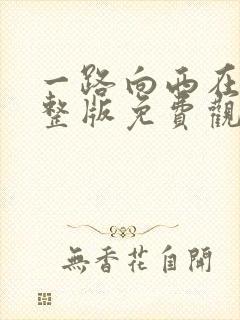 一路向西在
整版免費觀
無香花自開